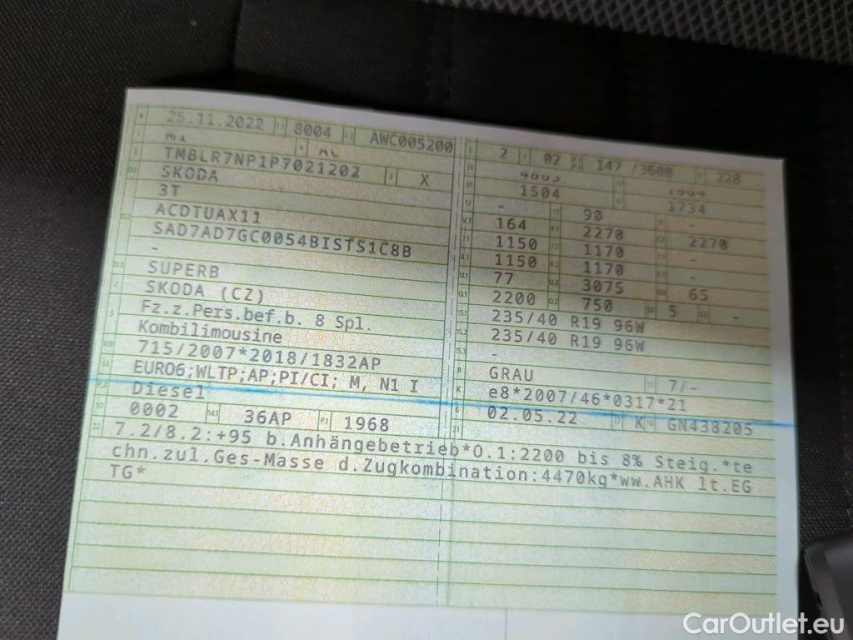 25.11.2022 8004 AWC005200 2 02 147 /3600 228
M1
TMBLR7NP1P7021202 X
SKODA 1504
3T - 90 1734
ACDTUAX11 164 2270 2270
SAD7AD7GC0054BISTS1C8B 1150 1170 -
- 1150 1170 -
SUPERB 77 3075 65
SKODA (CZ) 2200 750 5 -
Fz.z.Pers.bef.b. 8 Spl. 235/40 R19 96W
Kombilimousine 235/40 R19 96W
715/2007*2018/1832AP -
EURO6;WLTP;AP;PI/CI; M, N1 I GRAU 7/-
Diesel e8*2007/46*0317*21
0002 36AP 1968 02.05.22 K GN438205
7.2/8.2:+95 b.Anhängebetrieb*O.1:2200 bis 8% Steig.*te
chn.zul.Ges-Masse d.Zugkombination:4470kg*ww.AHK lt.EG
TG*
CarOutlet.eu